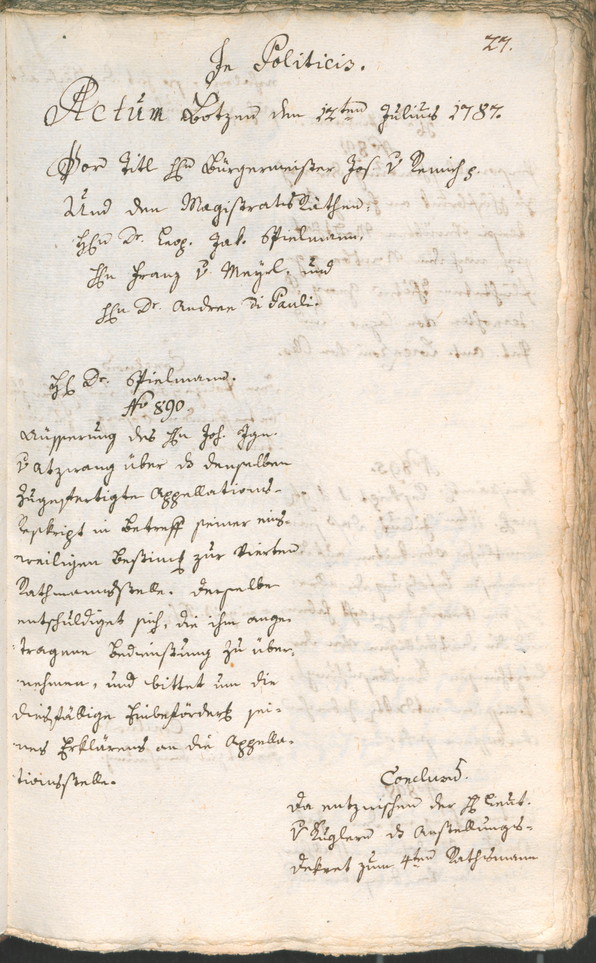 27.
In Politicis.
Actum Botzen den 12ten Julius 1787.
Vor Titl Hn Bürgermeister Jos. v Remich
Und den Magistrats Räthen,
Hn Dr. Leop. Jak. Spielmann,
Hn Franz v Meyrl, und
Hn Dr. Andree Di Pauli.
H Dr. Spielmann.
No 890
Aüsserung des Hn Joh. Ign.
v Atzwang über d denselben
zugefertigte Appellations-
Reskript in Betreff seiner eins-
weiligen Bestimg zur vierten
Rathmannsstelle. Derselbe
entschuldiget sich, die ihm ange-
tragene Bedienstung zu über-
nehmen, und bittet um die
diesfällige Einbeförderg sei-
nes Erklärens an die Appella-
tionsstelle.
Conclusum.
Da entzwischen der H Leut.
v Kuglern d Anstellungs-
Dekret zum 4ten Rathsmann